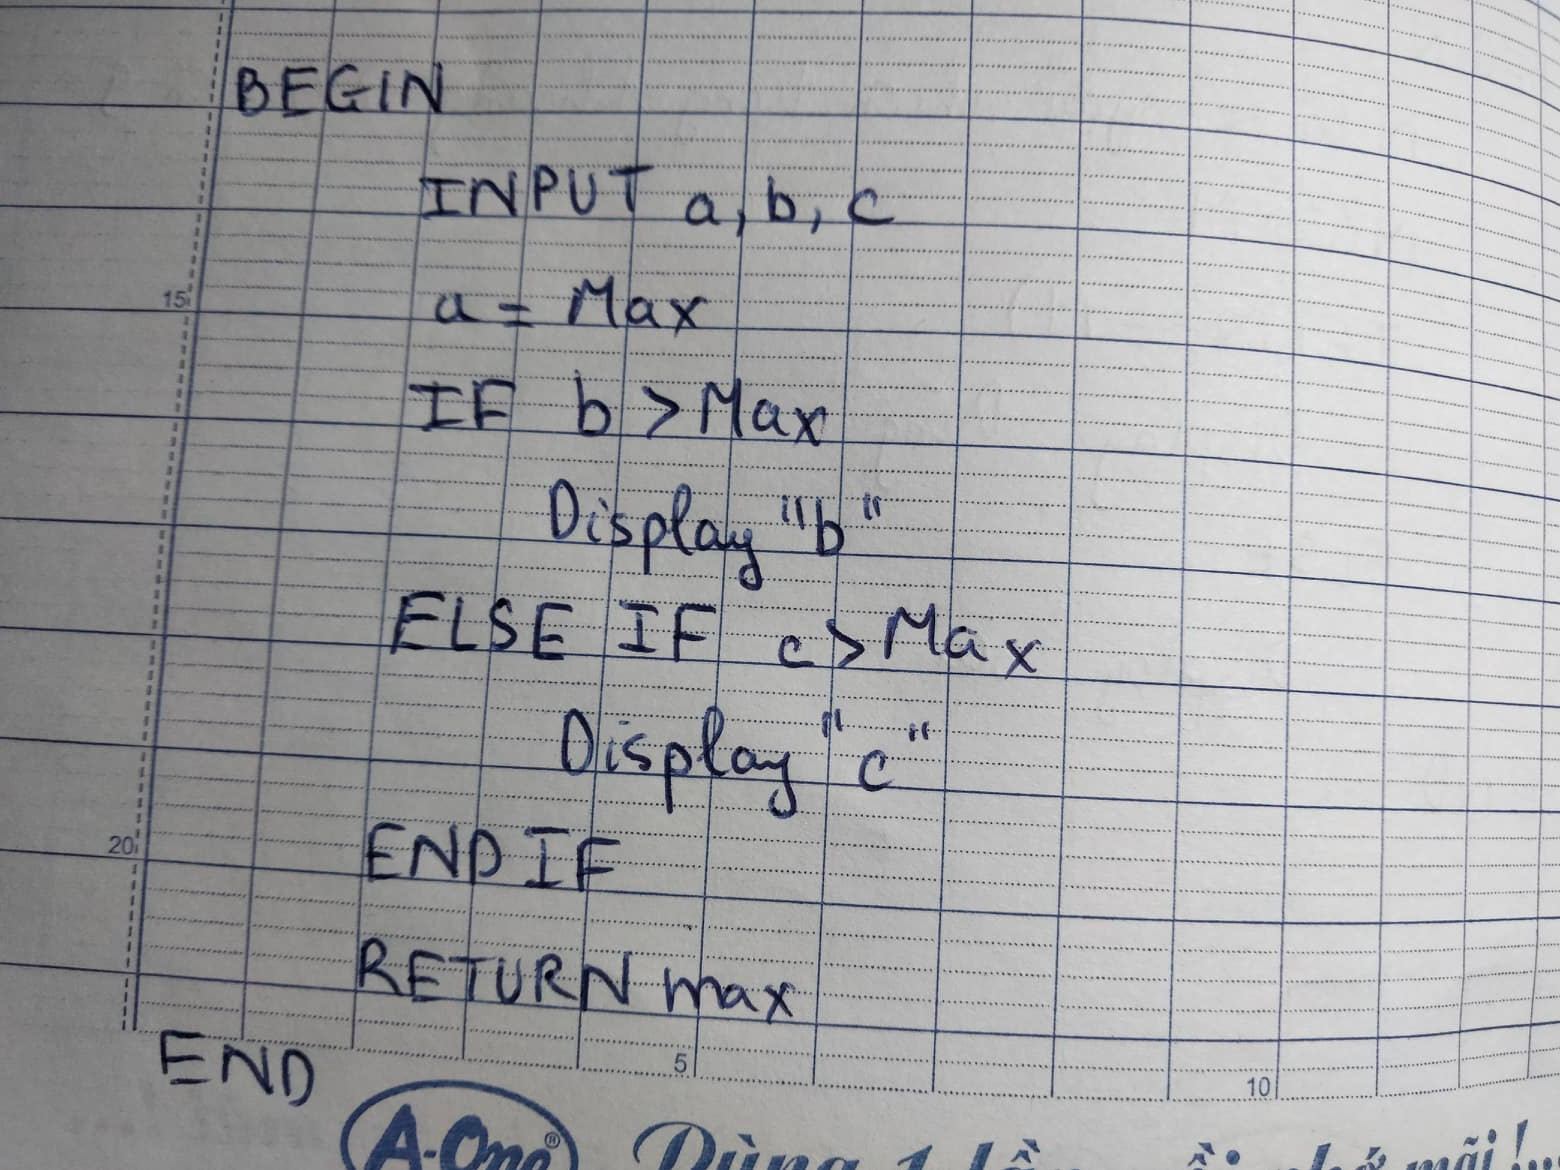 BEGIN
INPUT a, b, c
15
a = Max
IF b > Max
Display "b"
ELSE IF c > Max
Display "c"
20
END IF
RETURN max
END
5
10
A-One®
Dùng 1 lần
nhớ mãi!...